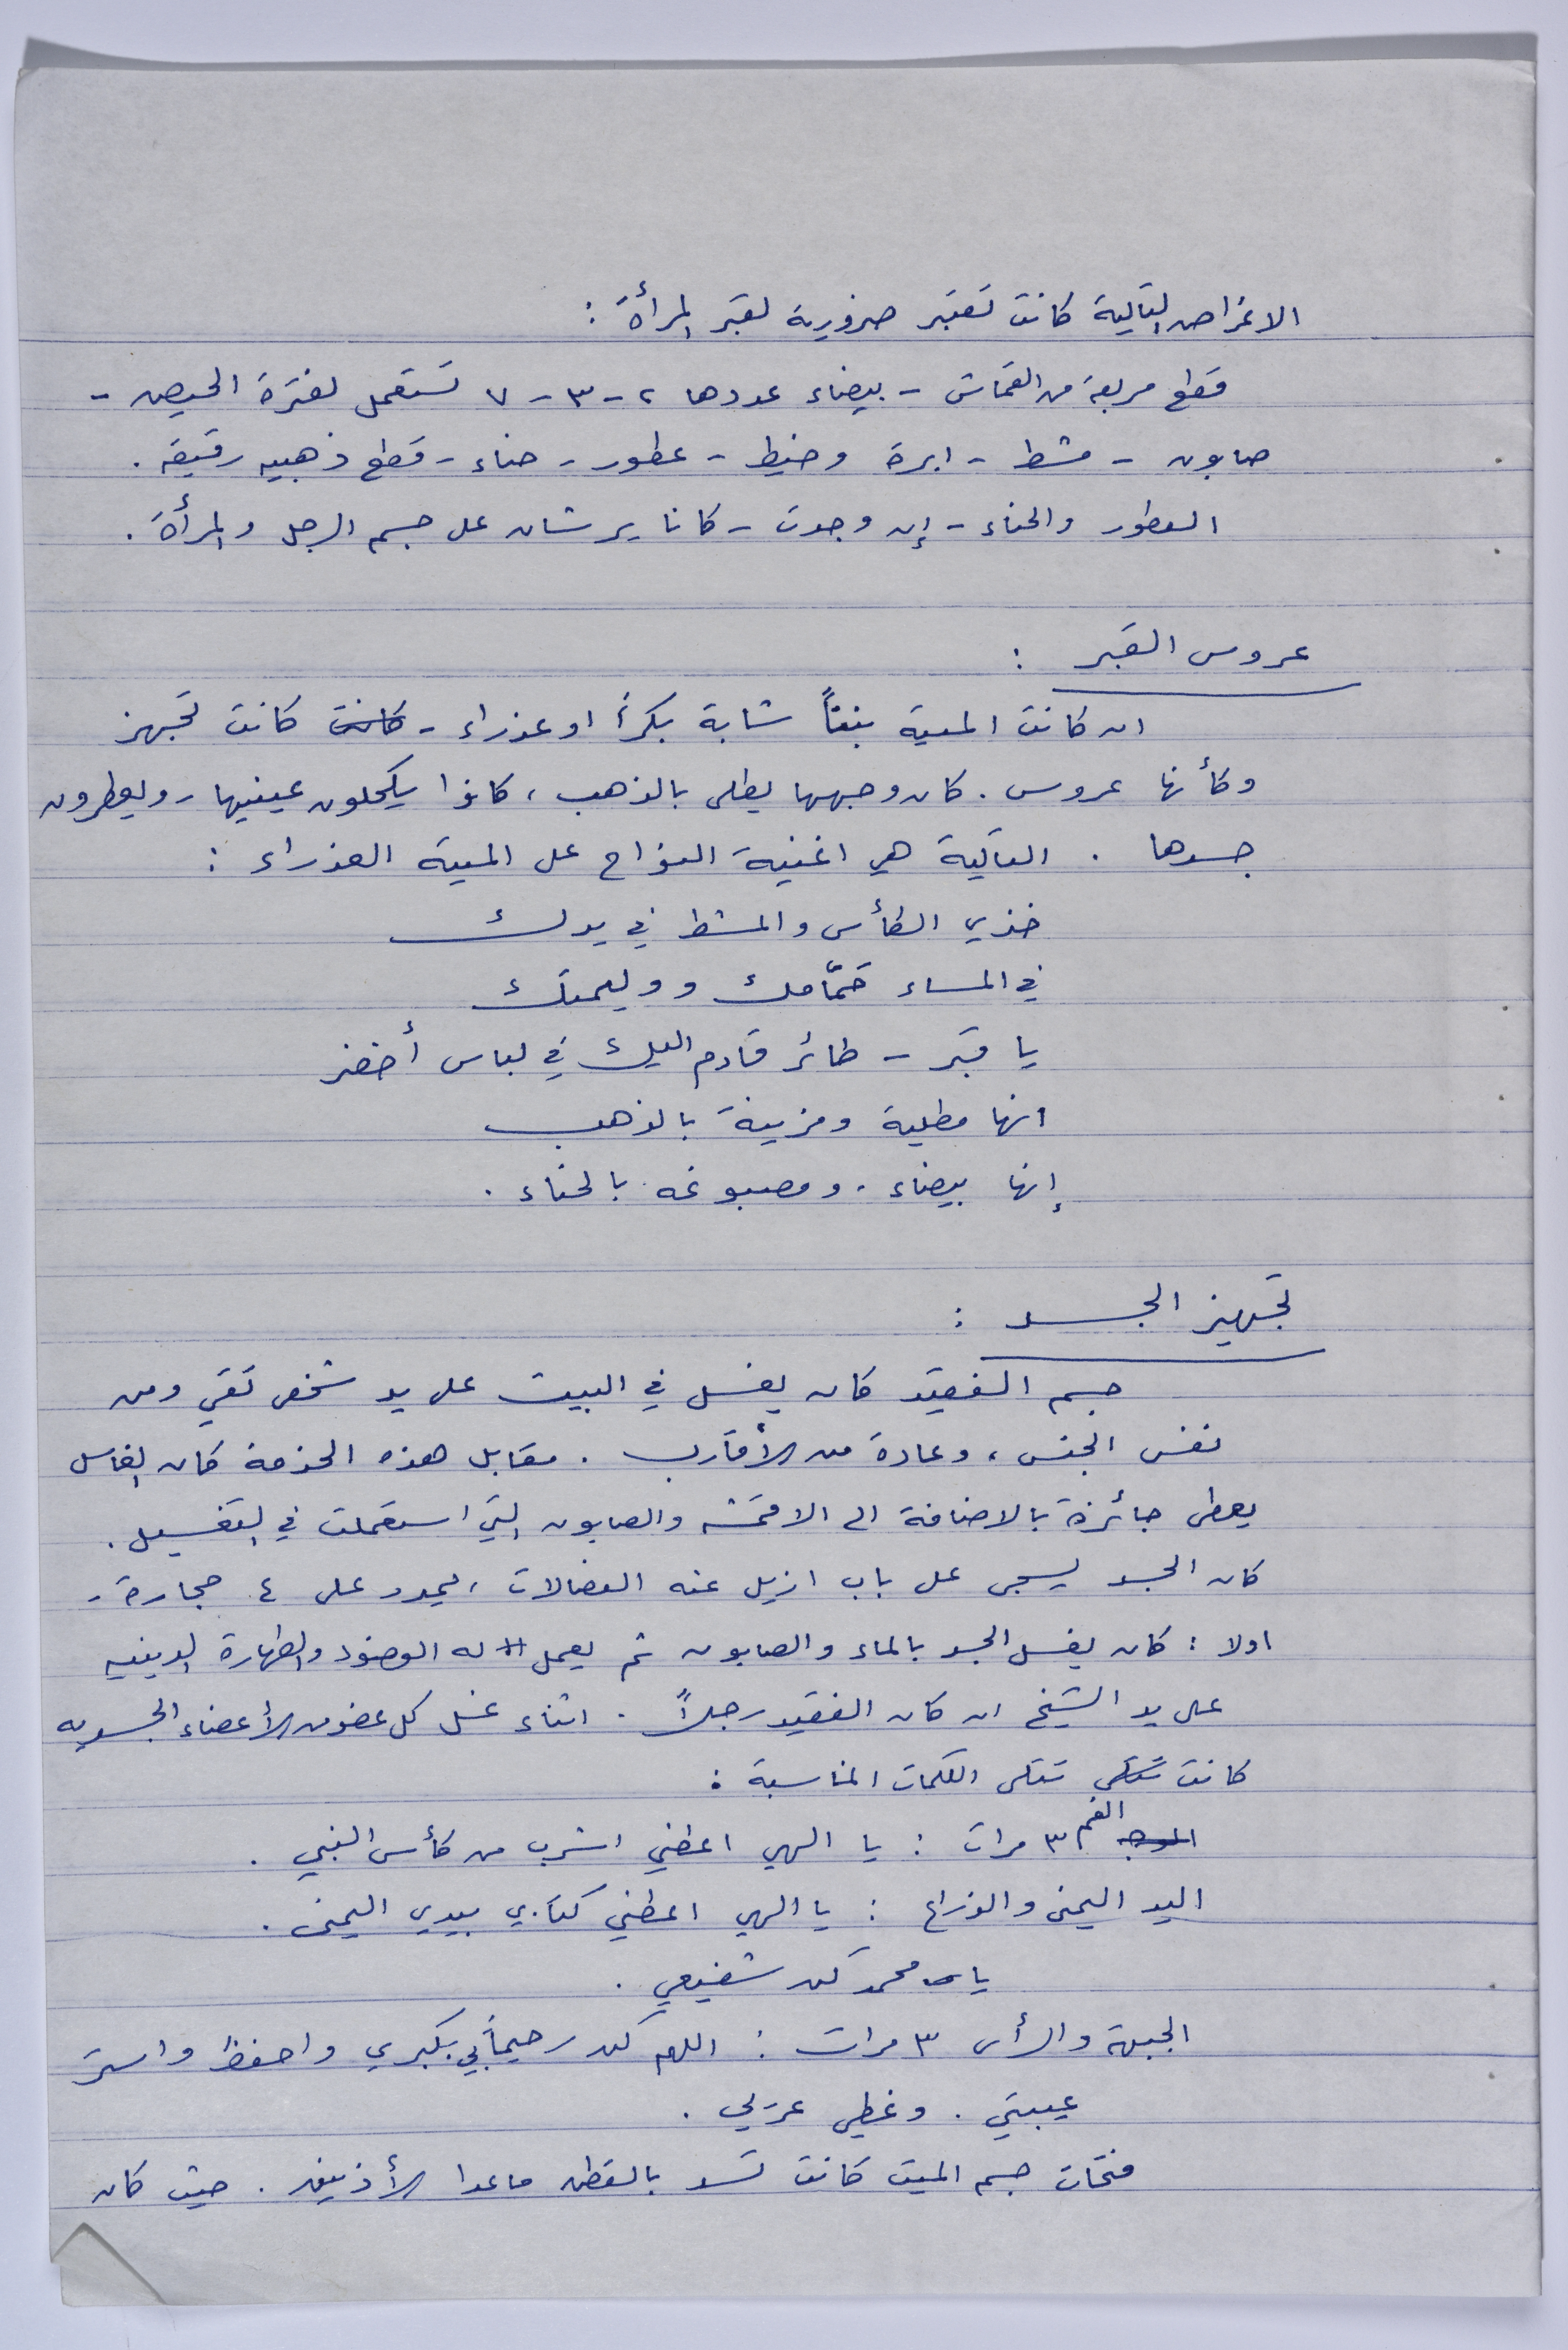 الاغراض التالية كانت تعتبر ضرورية لقبر المرأة :
قطع مربعة من القماش - بيضاء عددها ٢ - ٣ - ٧ تستعمل لفترة الحيض -
صابون - مشط - ابرة وخيط - عطور - حناء - قطع ذهبيه رقيقه .
العطور والحناء - إن وجدت - كانا يرشان على جسم الرجل والمرأة .
عروس القبر :
ان كانت الميته بنتاً شابة بكراً او عذراء - كانت كانت تجهز
وكأنها عروس . كان وجهها يطلى بالذهب ، كانوا يكحلون عينيها - ويعطرون
جسدها . التالية هي اغنية النواح على الميتة العذراء :
خذي الكأس والمشط في يدك
في المساء حمّامك ووليمتك
يا قبر - طائر قادم اليك في لباس أخضر
انها مطلية ومزينة بالذهب
إنها بيضاء . ومصبوغه بالحناء .
تجهيز الجسد :
جسم الفقيد كان يغسل في البيت على يد شخص تقي ومن
نفس الجنس ، وعادة من الأقارب . مقابل هذه الخدمة كان الغاسل
يعطى جائزة بالاضافة الى الاقمشه والصابون التي استعملت في التغسيل .
كان الجسد يسجى على باب ازيل عنه الغضالات ، يمدد على ٤ حجارة -
اولا : كان يغسل الجسد بالماء والصابون ثم يعمل له الوضوء والطهارة الدينيه
على يد الشيخ ان كان الفقيد رجلاً . اثناء غسل كل عضو من الأعضاء الجسديه
كانت تتلى تتلى الكلمات المناسبة :
الوجه الفم ٣ مرات : يا الهي اعطني اشرب من كأس النبي .
اليد اليمنى والذراع : يا الهي اعطني كتابي بيدي اليمنى .
يا محمد كن شفيعي .
الجبهة والرأس ٣ مرات : اللهم كن رحيماً بي بكبري واحفظ واستر
عيبتي . وغطي عريي .
فتحات جسم الميت كانت تسد بالقطن ماعدا الأذنين . حيث كان